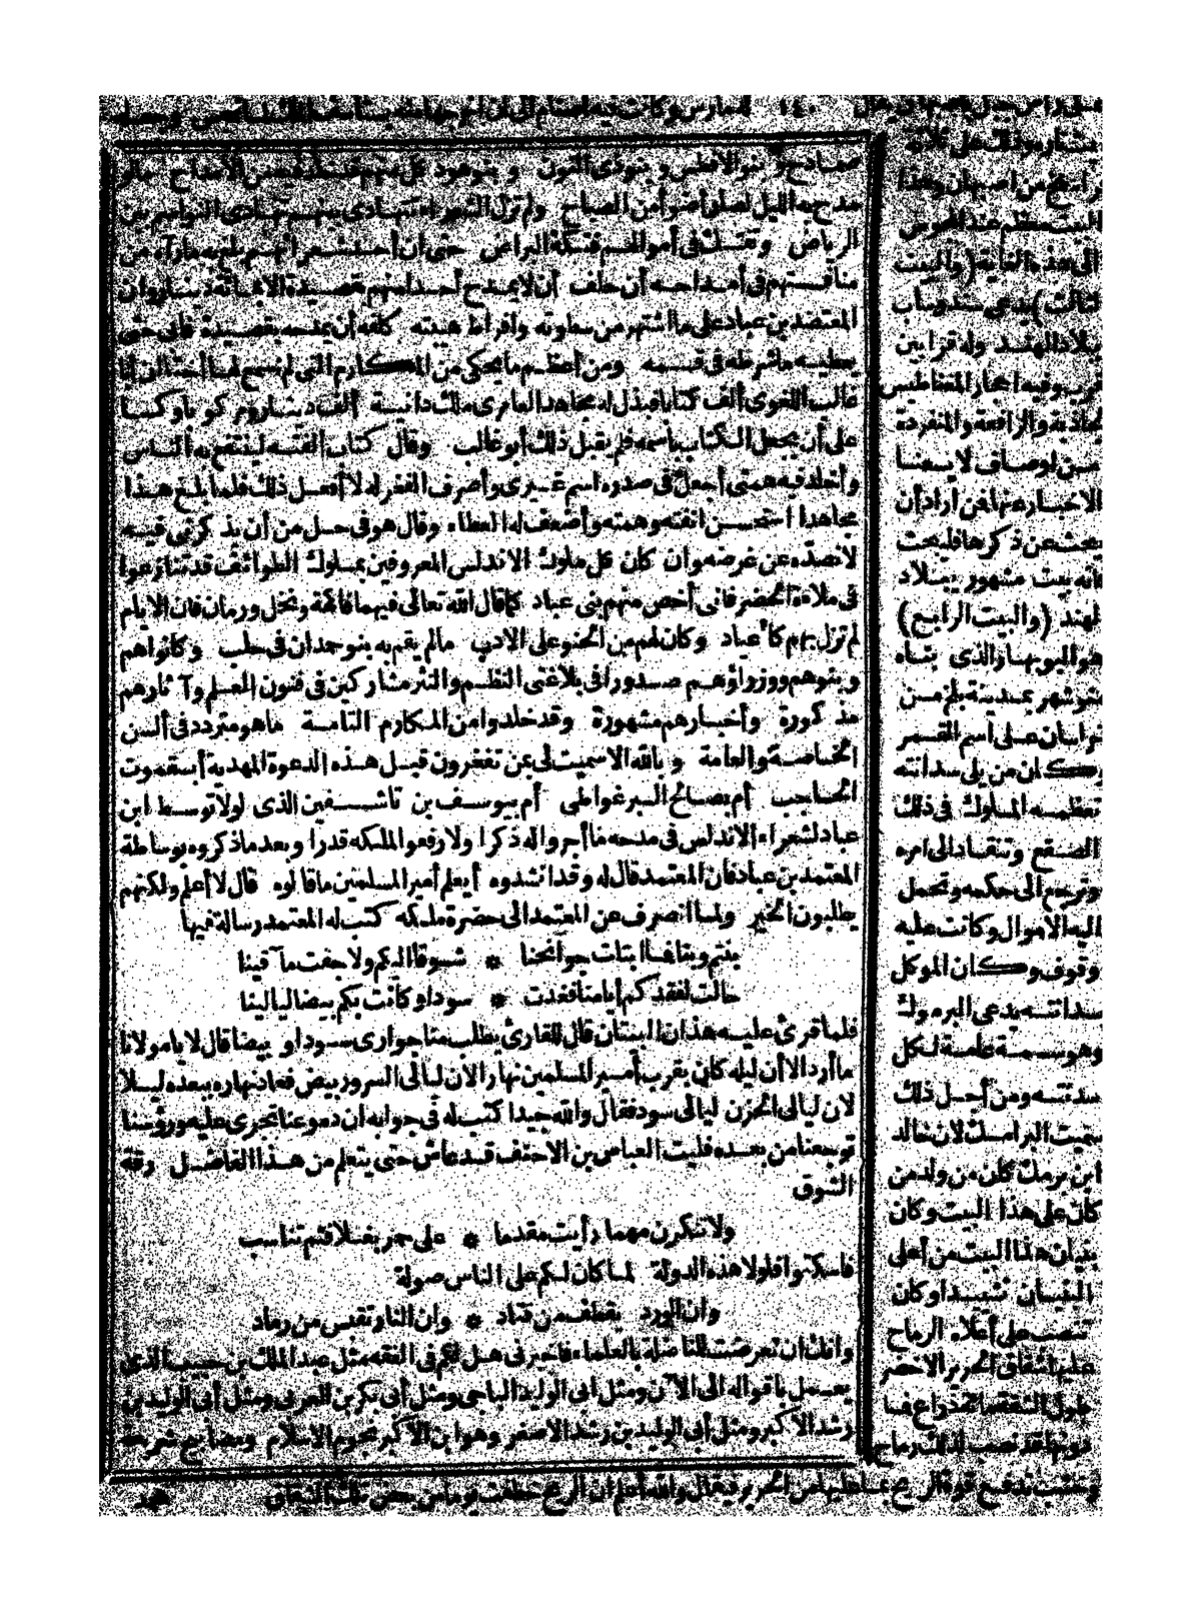 ١٤٠
صمادح وبنو الافطس وبنو ذى النون وبنو هود كل منهم قد خلد فيه من الامداح مالو
مدح به الليل لصار أضوأ من الصباح ولم تزل الشعراء تتهادى بينهم تهادى النواسم بين
الرياض وتفتك فى أموالهم فتكة البراض حتى ان أحد شعرائهم بلغ به مارآه من
منافستهم فى أمداحه أن حلف أن لا يمدح أحدا منهم بقصيدة الا بمائة دينار وان
المعتضد بن عباد على ما اشتهر من سطوته وافراط هيبته كلفه أن يمدحه بقصيدة فابى حتى
يعطيه ماشرطه فى قسمه ومن أعظم ما يحكى من المكارم التى لم نسمع لها أختا ان أبا
غالب اللغوى ألف كتابا فبذل له مجاهد العامرى ملك دانية ألف دينار ومركوبا وكسا
على أن يجعل الكتاب باسمه فلم يقبل ذلك أبو غالب وقال كتاب ألفته لينتفع به الناس
وأخلد فيه همتى أجعل فى صدره اسم غيرى وأصرف الفخر له لا أفعل ذلك فلما بلغ هذا
مجاهدا استحسن انفته وهمته وأضعف له العطاء وقال هو فى حل من أن يذكرنى فيه
لا نصده عن غرضه وان كان كل ملوك الاندلس المعروفين بملوك الطوائف قد تنازعوا
فى ملاءة الحضر فانى أخص منهم بنى عباد كما قال الله تعالى فيهما فاكهة ونخل ورمان فان الايام
لم تزل بهم كأعياد وكان لهم من الحنو على الادب مالم يقم به بنو حمدان فى حلب وكانوا هم
وبنوهم ووزراؤهم صدورا فى بلاغتى النظم والنثر مشاركين فى فنون العلم وآثارهم
مذكورة وأخبارهم مشهورة وقد خلدوا من المكارم التامة ماهو متردد فى ألسن
الخاصة والعامة وبالله الا سميت لى بمن تفخرون قبل هذه الدعوة المهدية أبسقوت
الحاجب أم بصالح البرغواطى أم بيوسف بن تاشفين الذى لولا توسط ابن
عباد لشعراء الاندلس فى مدحه ما أجروا له ذكرا ولا رفعوا لملكه قدرا وبعد ماذكروه بوساطة
المعتمد بن عباد فان المعتمد قال له وقد انشدوه أيعلم أمير المسلمين ما قالوه قال لا أعلم ولكنهم
يطلبون الخبز ولما انصرف عن المعتمد الى حضرة ملكه كتب له المعتمد رسالة فيها
بنتم وبنا فما ابتلت جوانحنا * شوقا اليكم ولا جفت مآقينا
حالت لفقدكم أيامنا فغدت * سودا وكانت بكم بيضا ليالينا
فلما قرئ عليه هذان البيتان قال للقارئ يطلب منا جوارى سودا و بيضا قال لا يامولانا
ما أراد الا أن ليله كان بقرب أمير المسلمين نهارا لان ليالى السرور بيض فعاد نهاره ببعده ليلا
لان ليالى الحزن ليالى سود فقال والله جيدا كتب له فى جوابه ان دموعنا تجرى عليه ورؤسنا
توجعنا من بعده فليت العباس بن الاحنف قد عاش حتى يتعلم من هذا الفاضل رقة
الشوق
ولا تنكرن مهما رأيت مقدما * على حمر بغلا فثم تناسب
فاسكتوا فلولا هذه الدولة لما كان لكم على الناس صولة
وان الورد يقطف من قتاد * وان النار تقبس من رماد
وانك ان تعرضت للمفاضلة بالعلماء فاخبرنى هل لكم فى الفقه مثل عبد الملك بن حبيب الذى
يعمل باقواله الى الآن ومثل أبى الوليد الباجى ومثل أبى بكر بن العربى ومثل أبى الوليد بن
رشد الاكبر ومثل أبى الوليد بن رشد الاصغر وهو ابن الاكبر نجوم الاسلام ومصابيح شريعة
محمد
رابع من اصبهان وهذا
البيت معظم عند المجوس
الى هذه الغاية (والبيت
الثالث) يدعى
ببلاد الهند وله قرابين
تقرب وفيه احجار المغناطيس
الجاذبة والرافعة والمنفردة
من اوصاف لا يسعنا
الاخبار عنها فمن اراد أن
يبحث عن ذكرها فليبحث
فانه بيت مشهور ببلاد
الهند (والبيت الرابع)
هو النوبهار الذى بناه
منوشهر بمدينة بلخ من
خراسان على اسم القمر
وكان من يلى سدانته
تعظمه الملوك فى ذلك
الصقع وتنقاد الى امره
وترجع الى حكمه وتحمل
اليه الاموال وكانت عليه
وقوف وكان الموكل
بسدانته يدعى البرموك
وهو سمة عامة لكل
سدنته ومن أجل ذلك
سميت البرامكة لان خالد
ابن برمك كان من ولد من
كان على هذا البيت وكان
بنيان هذا البيت من أعلى
البنيان تشييدا وكان
تنصب على أعلاه الرماح
عليها شقاق الحرير الاخضر
طول الشقة مائة ذراع فما
دونها قد نصب لذلك رماح
وخشب تدفع قوة الريح بما عليها من الحرير فيقال والله أعلم ان الريح خطفت يوما من بعض تلك الشقاق